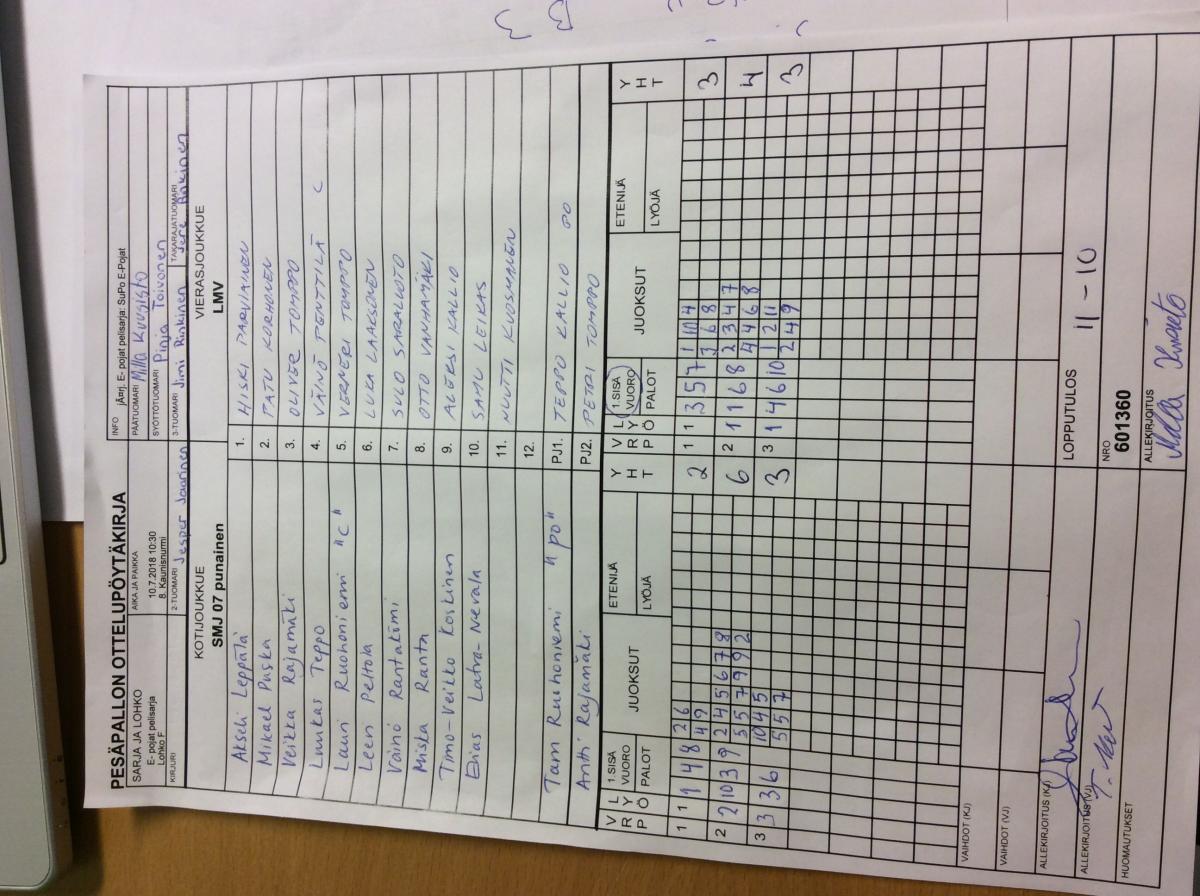 PESÄPALLON OTTELUPÖYTÄKIRJA
SARJA JA LOHKO
E- pojat pelisarja
Lohko F
AIKA JA PAIKKA
10.7.2018 10:30
8. Kaunisnurmi
INFO jÄ¤rj. E- pojat pelisarja: SuPo E-Pojat
PÄÄTUOMARI Milla Kuusisto
SYÖTTÖTUOMARI Pinja Toivonen
KIRJURI
2-TUOMARI Jesper Jaarinen
3-TUOMARI Jimi Rinkinen
TAKARAJATUOMARI Jere Rinkinen
KOTIJOUKKUE
SMJ 07 punainen
VIERASJOUKKUE
LMV
Akseli Leppälä 1. HISKI PARVIAINEN
Mikael Puska 2. PATU KORHONEN
Veikka Rajamäki 3. OLIVER TOMPPO
Luukas Teppo 4. VÄINÖ PENTTILÄ C
Lauri Ruohoniemi "C" 5. VERNERI TOMPPO
Leevi Peltola 6. LUKA LAAKSONEN
Väinö Rantakömi 7. SULO SARALUOTO
Miska Ranta 8. OTTO VANHAMÄKI
Timo-Veikko Koskinen 9. ALEKSI KALLIO
Elias Latva-Nevala 10. SAMU LEIKAS
11. NUUTTI KUOSMANEN
12.
Taru Ruohoniemi "po" PJ1. TEPPO KALLIO PO
Antti Rajamäki PJ2. PETRI TOMPPO
V R P L Y Ö 1.SISÄ VUORO PALOT JUOKSUT ETENIJÄ LYÖJÄ Y H T
V R P L Y Ö 1.SISÄ VUORO PALOT JUOKSUT ETENIJÄ LYÖJÄ Y H T
1 1 1 4 8 2 6 2
4 9
1 1 3 5 7 1 10 4 3
3 6 8
2 2 10 3 9 2 4 5 6 7 8 6
5 5 7 9 9 2
2 1 1 6 8 2 3 4 7 4
4 4 6 8
3 3 3 6 10 4 5 3
5 5 7
3 1 4 6 10 1 2 11 3
2 4 9
VAIHDOT (KJ)
VAIHDOT (VJ)
ALLEKIRJOITUS (KJ)
ALLEKIRJOITUS (VJ)
LOPPUTULOS 11 - 10
HUOMAUTUKSET
NRO
601360
ALLEKIRJOITUS
Milla Kuusisto